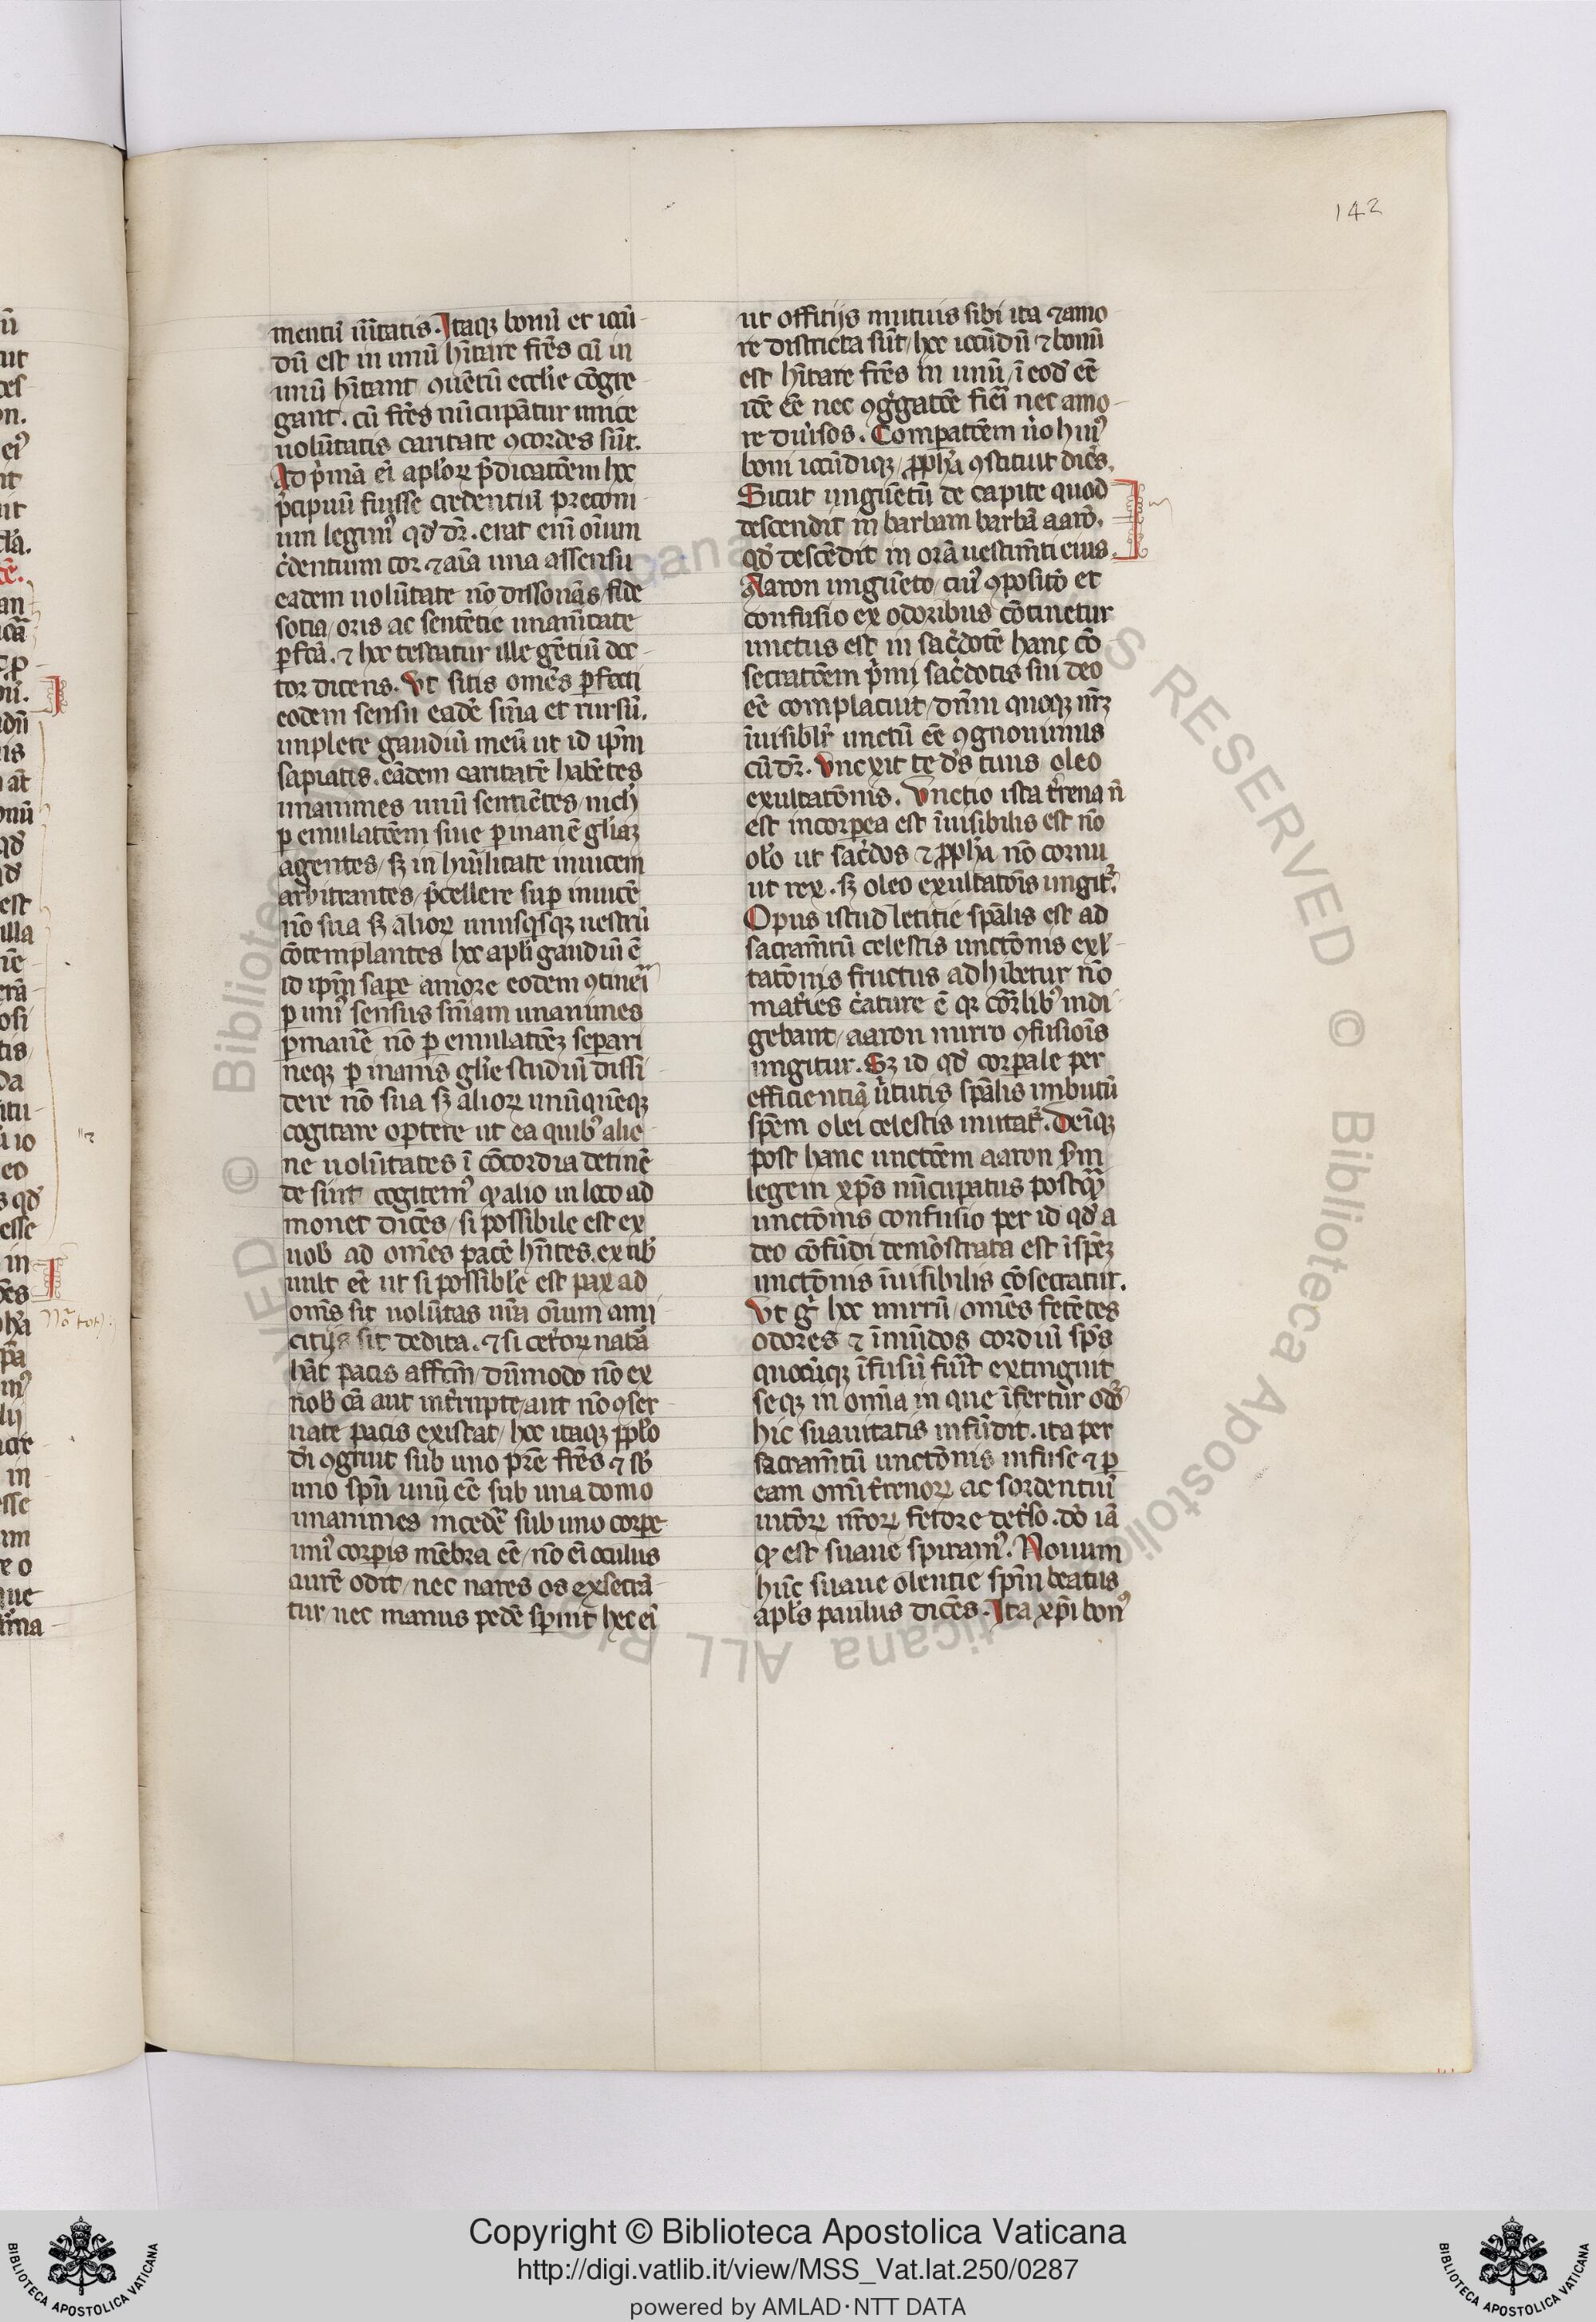 142
mentū ūītatis. Itaqꝫ bonū et iocū-
dū est in unū hītare frēs cū in
unū hītant ꝯuētū ecclīe cōgre-
gant. cū frēs nūcupātur unice
uolūtatis caritate ꝯcordes sūt.
Ad pͥmā ei apl'oꝝ p̄dicatōem hoc
pͥcipuū fuisse credentiū preconi
um legimꝰ qd' dr̄. erat enī oīum
c̓dentium cor ⁊ aīa una assensu
eadem uolūtate nō dissonās fide
sotia / oris ac sentētie unaīitate
ꝑfc̄a. ⁊ hoc testatur ille gētiū doc-
tor dicens. Vt sitis omēs ꝑfecti
eodem sensu eadē sn̄ia et rursū.
implete gaudiū meū ut id ip̄m
sapiatis. eādem caritatē habētes
unanimes unū sentiētes / nich'
ꝑ emulatōem siue ꝑ inanē gl'iaꝫ
agentes / sꝫ in hūilitate inuicem
arbitrantes / p̄cellere suꝑ inuicē
nō sua sꝫ alioꝝ unusqͥsqꝫ uestrū
cōtemplantes hoc apl'i gaudiū ē
id ip̄m saꝑe amore eodem ꝯtineri
ꝑ unīꝰ sensus sn̄iam unanimes
ꝑmanē nō ꝑ emulatōeꝫ separi
neqꝫ ꝑ inanis gl'ie studiū dissi-
dere nō sua sꝫ alioꝝ unūquēqꝫ
cogitare oꝑtere ut ea quibꝰ alie-
ne uolūtates ī cōcordia detinē
de sint cogitemꝰ qͥ alio in loco ad
monet dicēs / si possibile est ex
uob' ad omēs pacē hn̄tes. ex uib'
uult eē ut si possibl'e est pax ad
omīs sit uolūtas nr̄a oīum ami
citijs sit dedita. ⁊ si cet'oꝝ natā
hāt pacis affc̄m / dūmodo nō ex
nob' cā aut int'rupte / aut nō ꝯser-
uate pacis existat / hoc itaqꝫ ppl'o
dī ꝯgruit sub uno pr̄e frēs ⁊ sb'
uno spū unū eē sub una domo
unanimes incedē sub uno corꝑe
unīꝰ corꝑis mēbra eē / nō ei oculus
aurē odit / nec nares os exsecrā-
tur / nec manus pedē sꝑnit hec ei
ut offitijs mutuis sibi ita ⁊ amo-
re districta sūt / hoc iocūdū ⁊ bonū
est hītare frēs in unū / ī eod' eē
idē eē nec ꝯgͣgatōe fieri nec amo-
re diu'sos. Comparatōem u͛o huiꝰ
boni iocūdiqꝫ / ꝓph'a ꝯstituit dicēs.
Sicut ungūetū de capite quod
descendit in barbam barbā aarō.
qd' descēdit in orā uestimīti eius.
Aaron ungūeto / cuiꝰ ꝯposito et
confusio ex odoribus cōtinetur
unctus est in sac̓dotē hanc cō-
secratōem pͥmi sac̓dotis sui deo
eē complacuit / dn̄m quoqꝫ nr̄ꝫ
īuisibl'r unctū eē ꝯgnouimus
cū dr̄. Vnexit te d's tuus oleo
exultatōnis. Vnctio ista t'rena n̄
est incorꝑea est īuisibilis est nō
ol'o ut sac̓dos ⁊ ꝓph'a nō cornu
ut rex. sꝫ oleo exultatōis ungitͬ.
Opus istud letitie spālis est ad
sacramītū celestis unctōnis exl'-
tatōnis fructus adhibetur nō
mat'ies c̓ature ē qꝛ cōrlibꝰ indi-
gebant / aaron mirro ꝯfusiōis
ungitur. Sꝫ id qd' corꝑale per
efficientiā u͛tutis spālis imbutū
spēm olei celestis imitatͬ. Deīqꝫ
post hanc unctōem aaron s'm
legem xp̄s nūcupatus postqͣꝫ
unctōnis confusio per id qd' a
deo cōfūdi demōstrata est ī spēꝫ
unctōnis īuisibilis cōsecratur.
Vt gͦ hoc mirrū / omēs fetētes
odores ⁊ īmūdos cordiū spūs
quocūqꝫ īfusū fūit extinguit
seqꝫ in omīa in que īfertur odō
hic suauitatis infūdit. ita per
sacramītū unctōnis infuse ⁊ ꝑ
eam omī t'renoꝝ ac sordentiū
uitōꝝ nr̄oꝝ fetore det'so. dō iā
qͥ est suaue spiramꝰ. Nouum
hūc suaue olentie spm̄ beatus
apl's paulus dicēs. Ita xp̄i bonꝰ
Copyright © Biblioteca Apostolica Vaticana
http://digi.vatlib.it/view/MSS_Vat.lat.250/0287
powered by AMLAD·NTT DATA
BIBLIOTECA APOSTOLICA VATICANA
BIBLIOTECA APOSTOLICA VATICANA